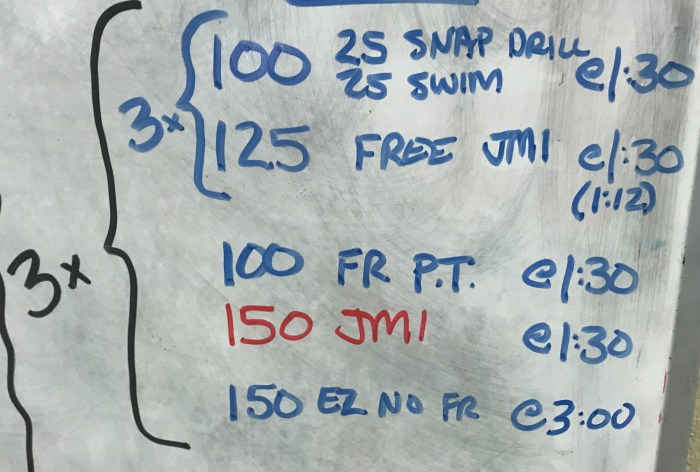 100 25 SNAP DRILL
25 SWIM @1:30
3x
125 FREE JMI @1:30
(1:12)
3x
100 FR P.T. @1:30
150 JMI @1:30
150 EZ NO FR @3:00